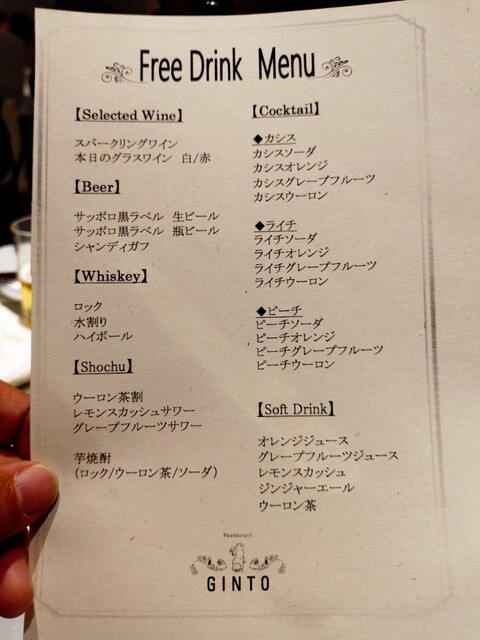 Free Drink Menu
【Selected Wine】
スパークリングワイン
本日のグラスワイン 白/赤
【Beer】
サッポロ黒ラベル 生ビール
サッポロ黒ラベル 瓶ビール
シャンディガフ
【Whiskey】
ロック
水割り
ハイボール
【Shochu】
ウーロン茶割
レモンスカッシュサワー
グレープフルーツサワー
芋焼酎
(ロック/ウーロン茶/ソーダ)
【Cocktail】
◆カシス
カシスソーダ
カシスオレンジ
カシスグレープフルーツ
カシスウーロン
◆ライチ
ライチソーダ
ライチオレンジ
ライチグレープフルーツ
ライチウーロン
◆ピーチ
ピーチソーダ
ピーチオレンジ
ピーチグレープフルーツ
ピーチウーロン
【Soft Drink】
オレンジジュース
グレープフルーツジュース
レモンスカッシュ
ジンジャーエール
ウーロン茶
Restaurant
GINTO